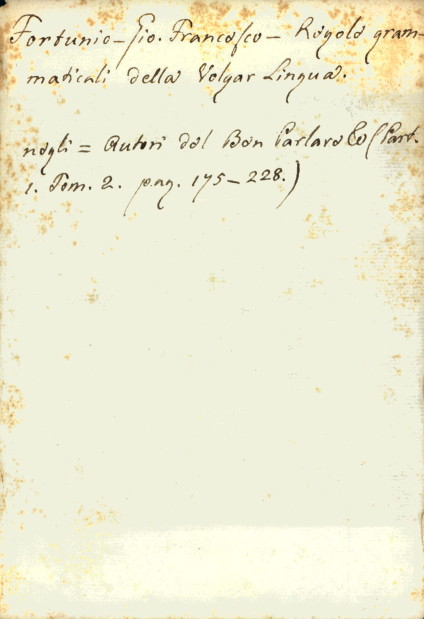 Fortunio – Gio. Francesco – Regole gram-
maticali della Volgar Lingua.
negli = Autori del Ben Parlare &c (Part.
1. Tom. 2. pag. 175–228.)